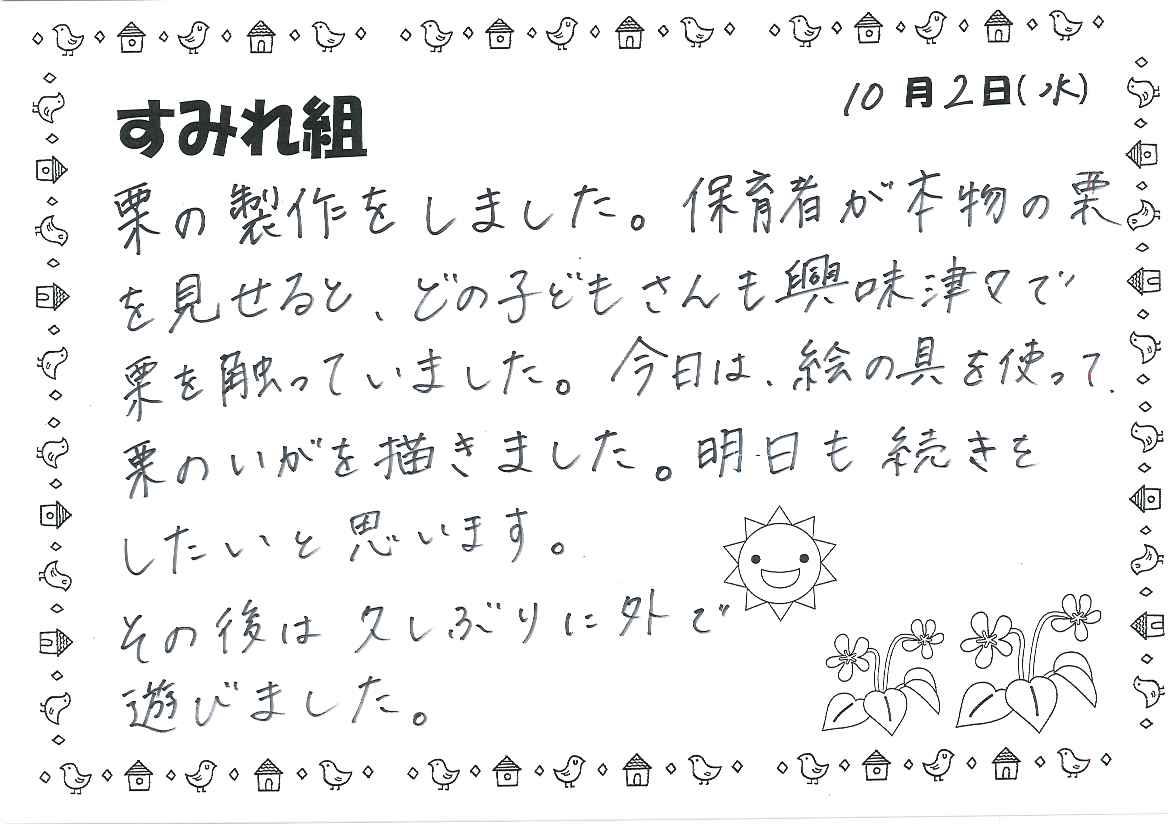 10月2日(水)
すみれ組
栗の製作をしました。保育者が本物の栗
を見せると、どの子どもさんも興味津々で
栗を触っていました。今日は、絵の具を使って、
栗のいがを描きました。明日も続きを
したいと思います。
その後は久しぶりに外で
遊びました。